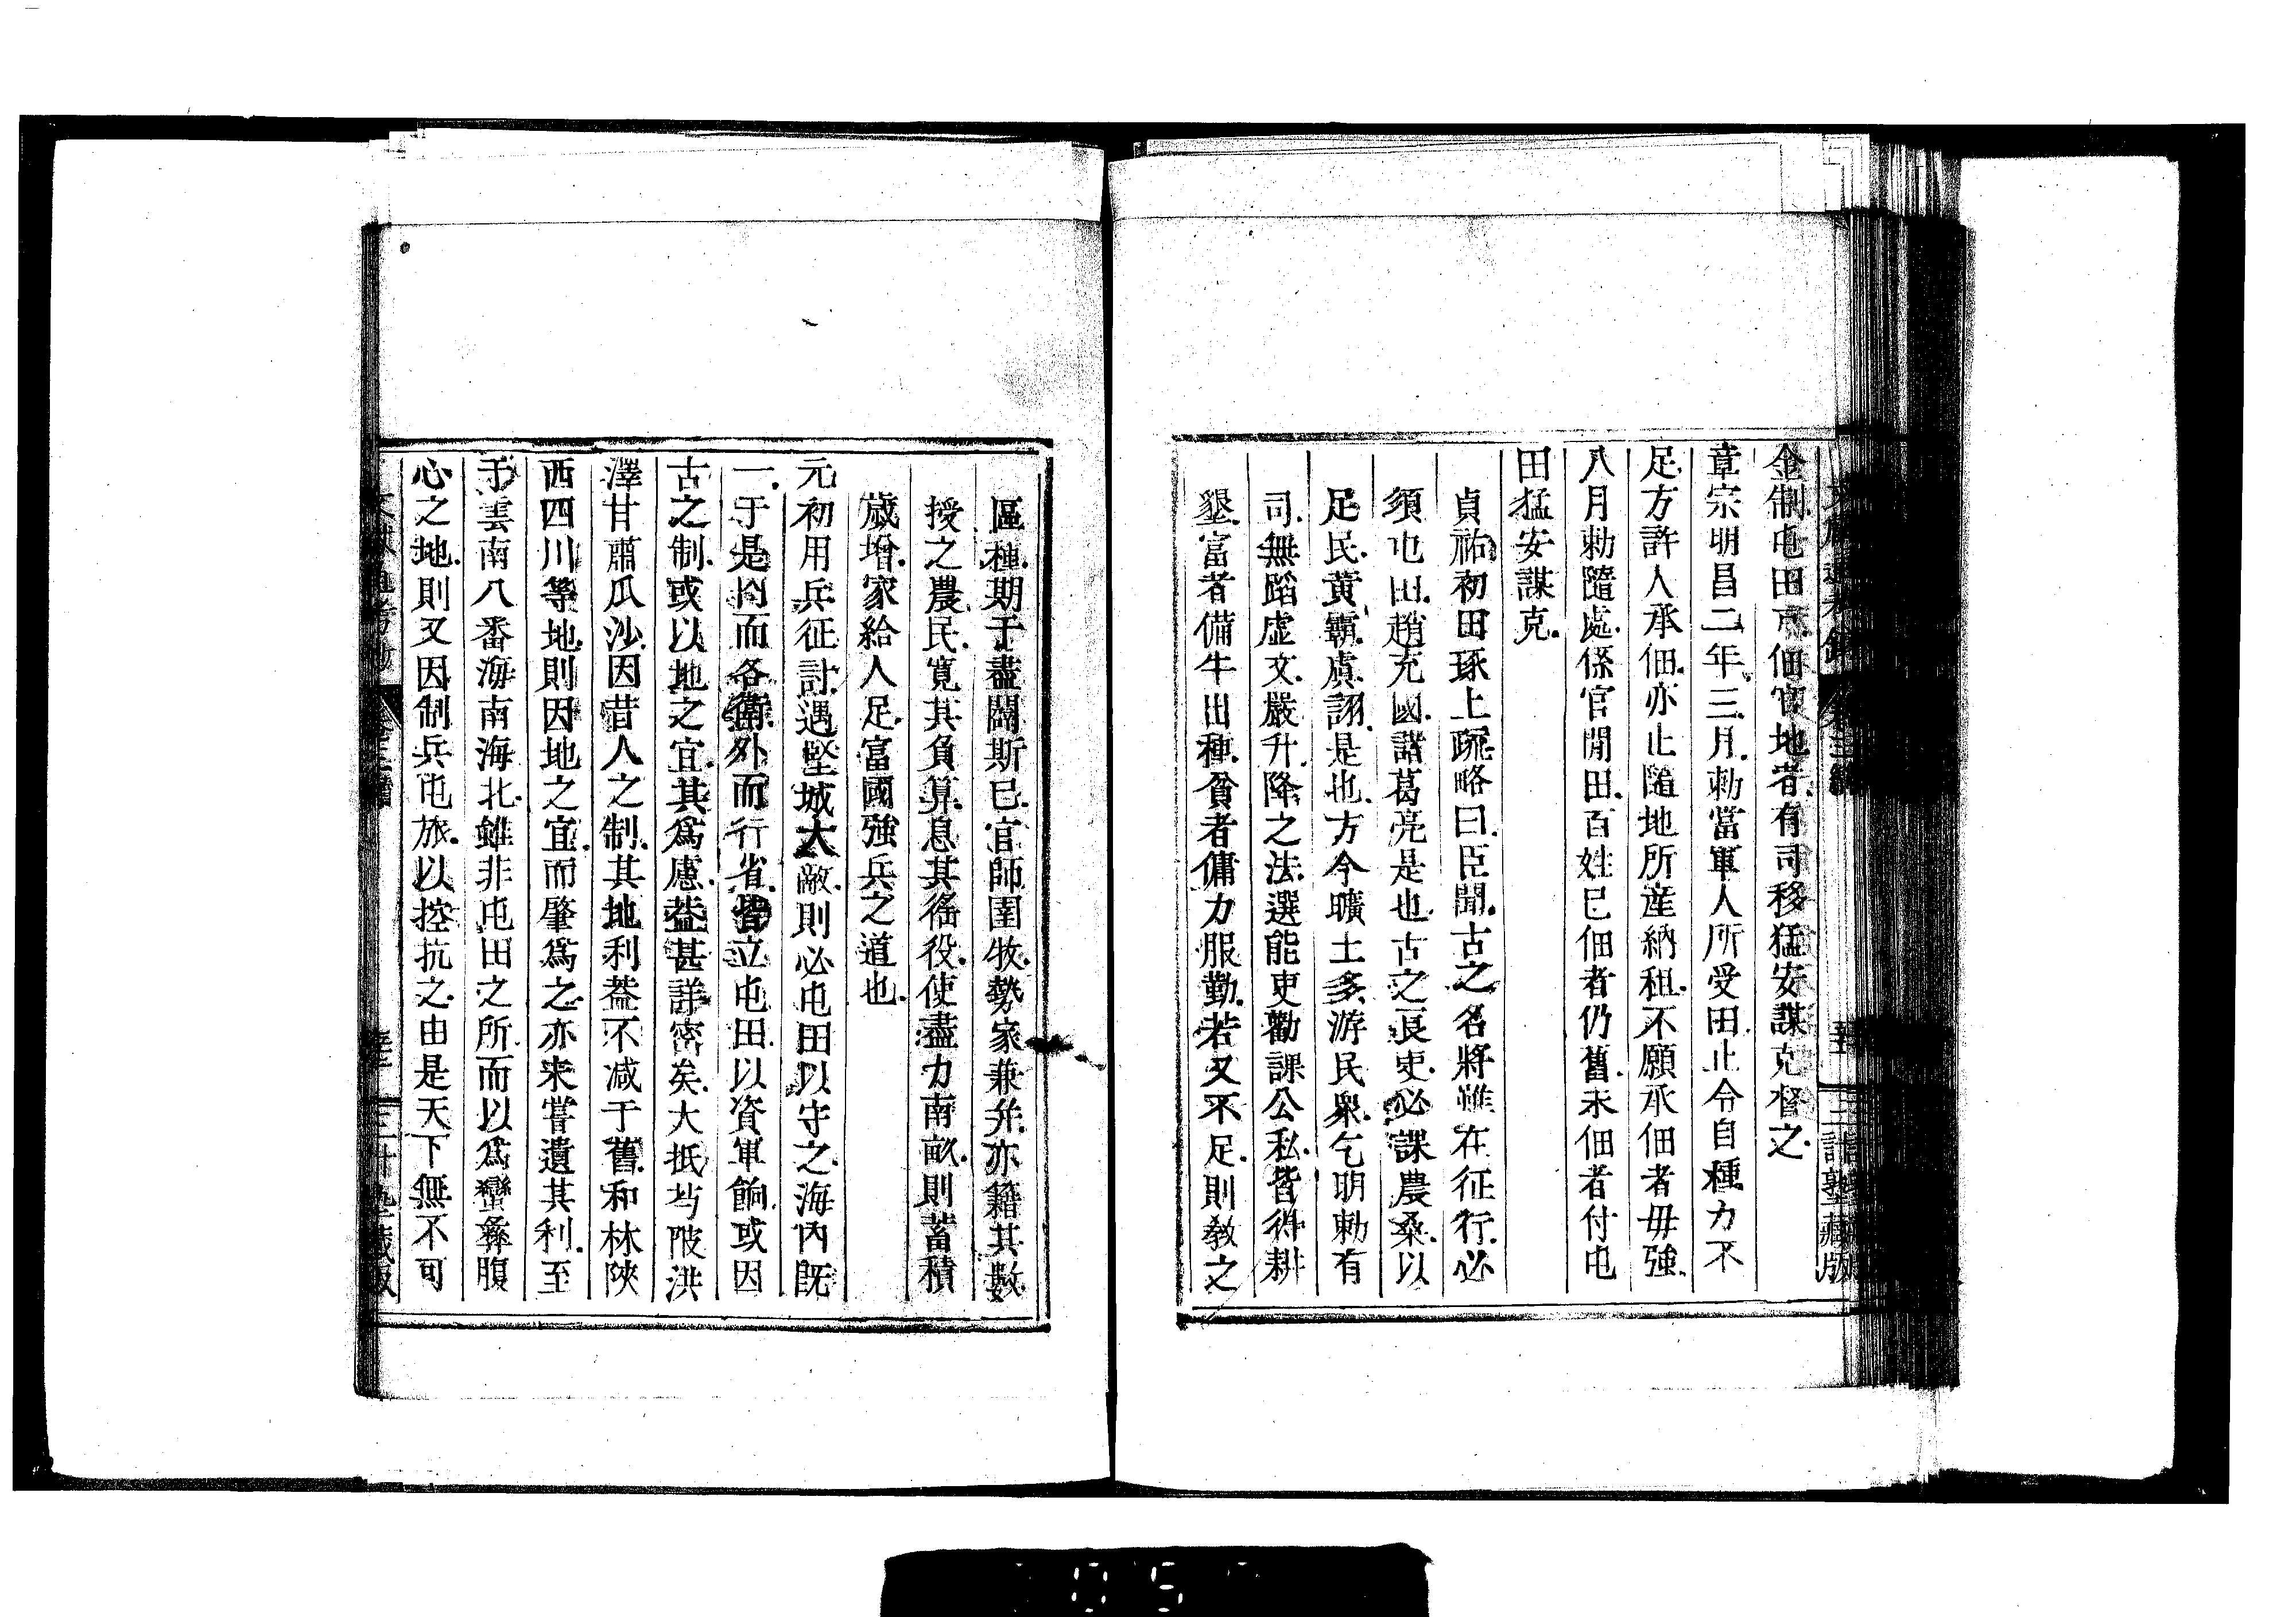 金制屯田戶佃官地者有司移猛安謀克督之
章宗明昌二年三月勅當軍人所受田止令自種力不
足方許人承佃亦止隨地所產納租不願承佃者毋強
八月勅隨處係官閒田百姓已佃者仍舊未佃者付屯
田猛安謀克
貞祐初田琢上疏略曰臣聞古之名將雖在征行必
須屯田趙充國諸葛亮是也古之良吏必課農桑以
足民黃霸虞詡是也方今曠土多游民衆乞明勅有
司無蹈虛文嚴升降之法選能吏勸課公私皆得耕
墾富者備牛出種貧者傭力服勤若又不足則教之
區種期于盡闢斯已官師圉牧勢家兼并亦籍其數
授之農民寬其負算息其徭役使盡力南畝則蓄積
歲增家給人足富國強兵之道也
元初用兵征討遇堅城大敵則必屯田以守之海內既
一于是內而各衛外而行省皆立屯田以資軍餉或因
古之制或以地之宜其爲慮葢甚詳密矣大抵芍陂洪
澤甘肅瓜沙因昔人之制其地利葢不減于舊和林陝
西四川等地則因地之宜而肇爲之亦未嘗遺其利至
于雲南八番海南海北雖非屯田之所而以爲蠻彝腹
心之地則又因制兵屯旅以控抗之由是天下無不可